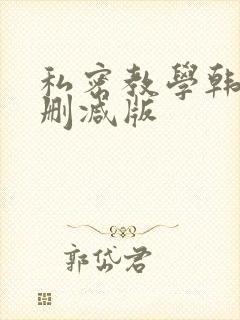 私密教學韩
删减版
郭岱君